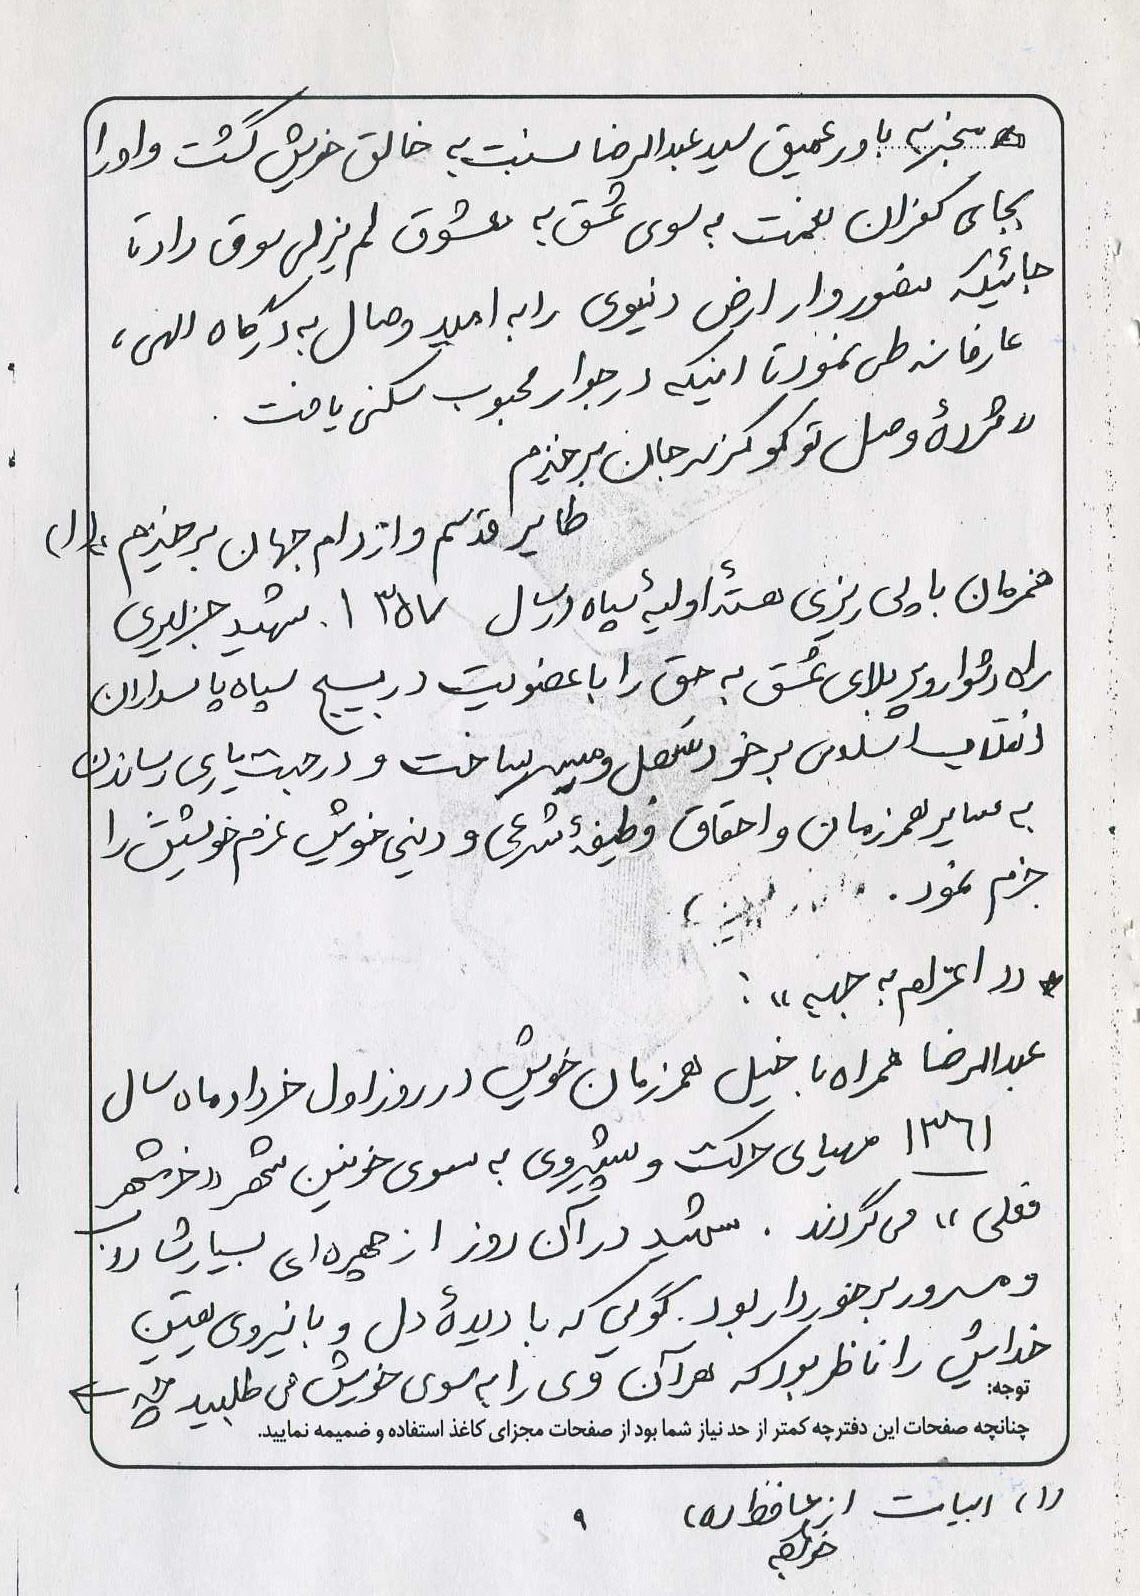 منجر به باور عمیق سید عبدالرضا نسبت به خالق خویش گشت و او را
بجای کفران نعمت به سوی عشق به معشوق لم یزلی سوق داد تا
جائیکه منصور وار ارض دنیوی را به امید وصال به درگاه الهی،
عارفانه طی نمود تا اینکه در جوار محبوب سکنی یافت.
«مژدهٔ وصل تو کو کز سر جان برخیزم
طایر قدسم و از دام جهان برخیزم» (۱)
همزمان با پی ریزی هستهٔ اولیهٔ سپاه در سال ۱۳۵۷. شهید جزایری
راه دشوار و پر بلای عشق به حق را با عضویت در بسیج سپاه پاسداران
انقلاب اسلامی بر خود سهل و میسر ساخت و در جهت یاری رساندن
به سایر همرزمان و احقاق وظیفهٔ شرعی و دینی خویش عزم خویشتن را
جزم نمود.
* «اعزام به جبهه»:
عبدالرضا همراه با خیل همرزمان خویش در روز اول خرداد ماه سال
۱۳۶۱ مهیای حرکت و پیشروی به سوی خونین شهر «خرمشهر
فعلی» می گردند. شهید در آن روز از چهره ای بسیار شادان
و مسرور برخوردار بود. گویی که با دیدهٔ دل و با نیروی یقین
خدایش را ناظر بود که هر آن وی را به سوی خویش می طلبید چه
توجه:
چنانچه صفحات این دفترچه کمتر از حد نیاز شما بود از صفحات مجزای کاغذ استفاده و ضمیمه نمایید.
(۱) ابیات از حافظ (ره)
خواجه
۹